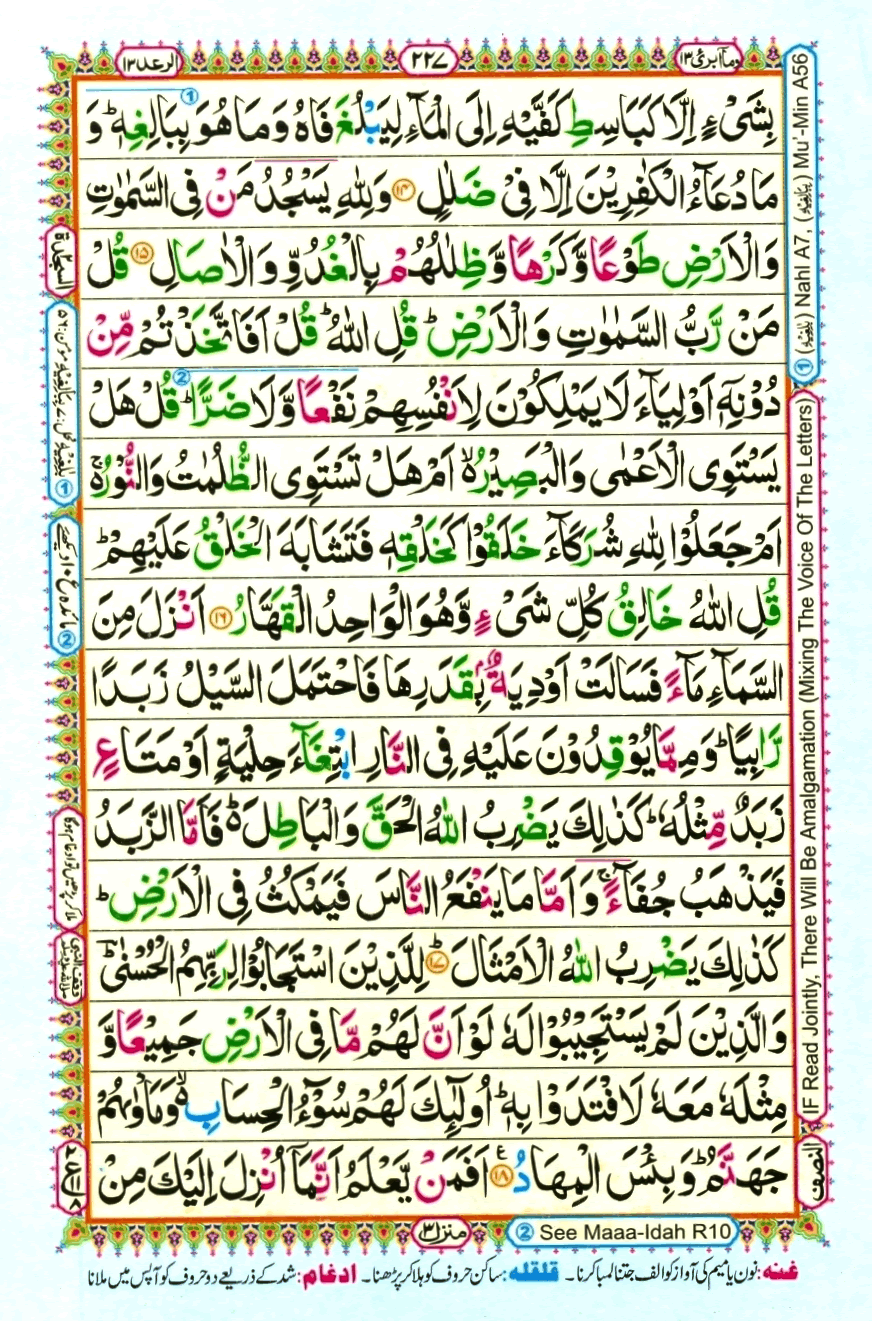 وماۤ ابرئ ١٣
٢٢٧
الرعد ١٣
بِشَیْءٍ اِلَّا كَبَاسِطِ كَفَّیْهِ اِلَی الْمَآءِ لِیَبْلُغَ فَاهُ وَمَا هُوَ بِبَالِغِهٖ ؕ وَ
مَا دُعَآءُ الْكٰفِرِیْنَ اِلَّا فِیْ ضَلٰلٍ ﴿۱۴﴾ وَلِلّٰهِ یَسْجُدُ مَنْ فِی السَّمٰوٰتِ
وَالْاَرْضِ طَوْعًا وَّكَرْهًا وَّظِلٰلُهُمْ بِالْغُدُوِّ وَالْاٰصَالِ ﴿۱۵﴾ قُلْ
مَنْ رَّبُّ السَّمٰوٰتِ وَالْاَرْضِ ؕ قُلِ اللّٰهُ ؕ قُلْ اَفَاتَّخَذْتُمْ مِّنْ
دُوْنِهٖۤ اَوْلِیَآءَ لَا یَمْلِكُوْنَ لِاَنْفُسِهِمْ نَفْعًا وَّلَا ضَرًّا ؕ قُلْ هَلْ
یَسْتَوِی الْاَعْمٰی وَالْبَصِیْرُ ۙ اَمْ هَلْ تَسْتَوِی الظُّلُمٰتُ وَالنُّوْرُ ۚ
اَمْ جَعَلُوْا لِلّٰهِ شُرَكَآءَ خَلَقُوْا كَخَلْقِهٖ فَتَشَابَهَ الْخَلْقُ عَلَیْهِمْ ؕ
قُلِ اللّٰهُ خَالِقُ كُلِّ شَیْءٍ وَّهُوَ الْوَاحِدُ الْقَهَّارُ ﴿۱۶﴾ اَنْزَلَ مِنَ
السَّمَآءِ مَآءً فَسَالَتْ اَوْدِیَةٌۢ بِقَدَرِهَا فَاحْتَمَلَ السَّیْلُ زَبَدًا
رَّابِیًا ؕ وَمِمَّا یُوْقِدُوْنَ عَلَیْهِ فِی النَّارِ ابْتِغَآءَ حِلْیَةٍ اَوْ مَتَاعٍ
زَبَدٌ مِّثْلُهٗ ؕ كَذٰلِكَ یَضْرِبُ اللّٰهُ الْحَقَّ وَالْبَاطِلَ ؕ۬ فَاَمَّا الزَّبَدُ
فَیَذْهَبُ جُفَآءً ۚ وَاَمَّا مَا یَنْفَعُ النَّاسَ فَیَمْكُثُ فِی الْاَرْضِ ؕ
كَذٰلِكَ یَضْرِبُ اللّٰهُ الْاَمْثَالَ ﴿۱۷﴾ؕ لِلَّذِیْنَ اسْتَجَابُوْا لِرَبِّهِمُ الْحُسْنٰی ؕؔ
وَالَّذِیْنَ لَمْ یَسْتَجِیْبُوْا لَهٗ لَوْ اَنَّ لَهُمْ مَّا فِی الْاَرْضِ جَمِیْعًا وَّ
مِثْلَهٗ مَعَهٗ لَافْتَدَوْا بِهٖ ؕ اُولٰٓئِكَ لَهُمْ سُوْٓءُ الْحِسَابِ ۙ۬ وَمَاْوٰىهُمْ
جَهَنَّمُ ؕ وَبِئْسَ الْمِهَادُ ﴿۱۸﴾ اَفَمَنْ یَّعْلَمُ اَنَّمَاۤ اُنْزِلَ اِلَیْكَ مِنْ
السجدة
النصف
① (بِبَالِغِيْهِ) Nahl A7, (بِبَالِغِيْهِ) Mu'-Min A56
IF Read Jointly, There Will Be Amalgamation (Mixing The Voice Of The Letters)
منزل ٣
② See Maaa-Idah R10
غنہ: نون یا میم کی آواز کو الف جتنا لمبا کرنا۔ قلقلہ: ساکن حروف کو ہلا کر پڑھنا۔ ادغام: شد کے ذریعے دو حروف کو آپس میں ملانا